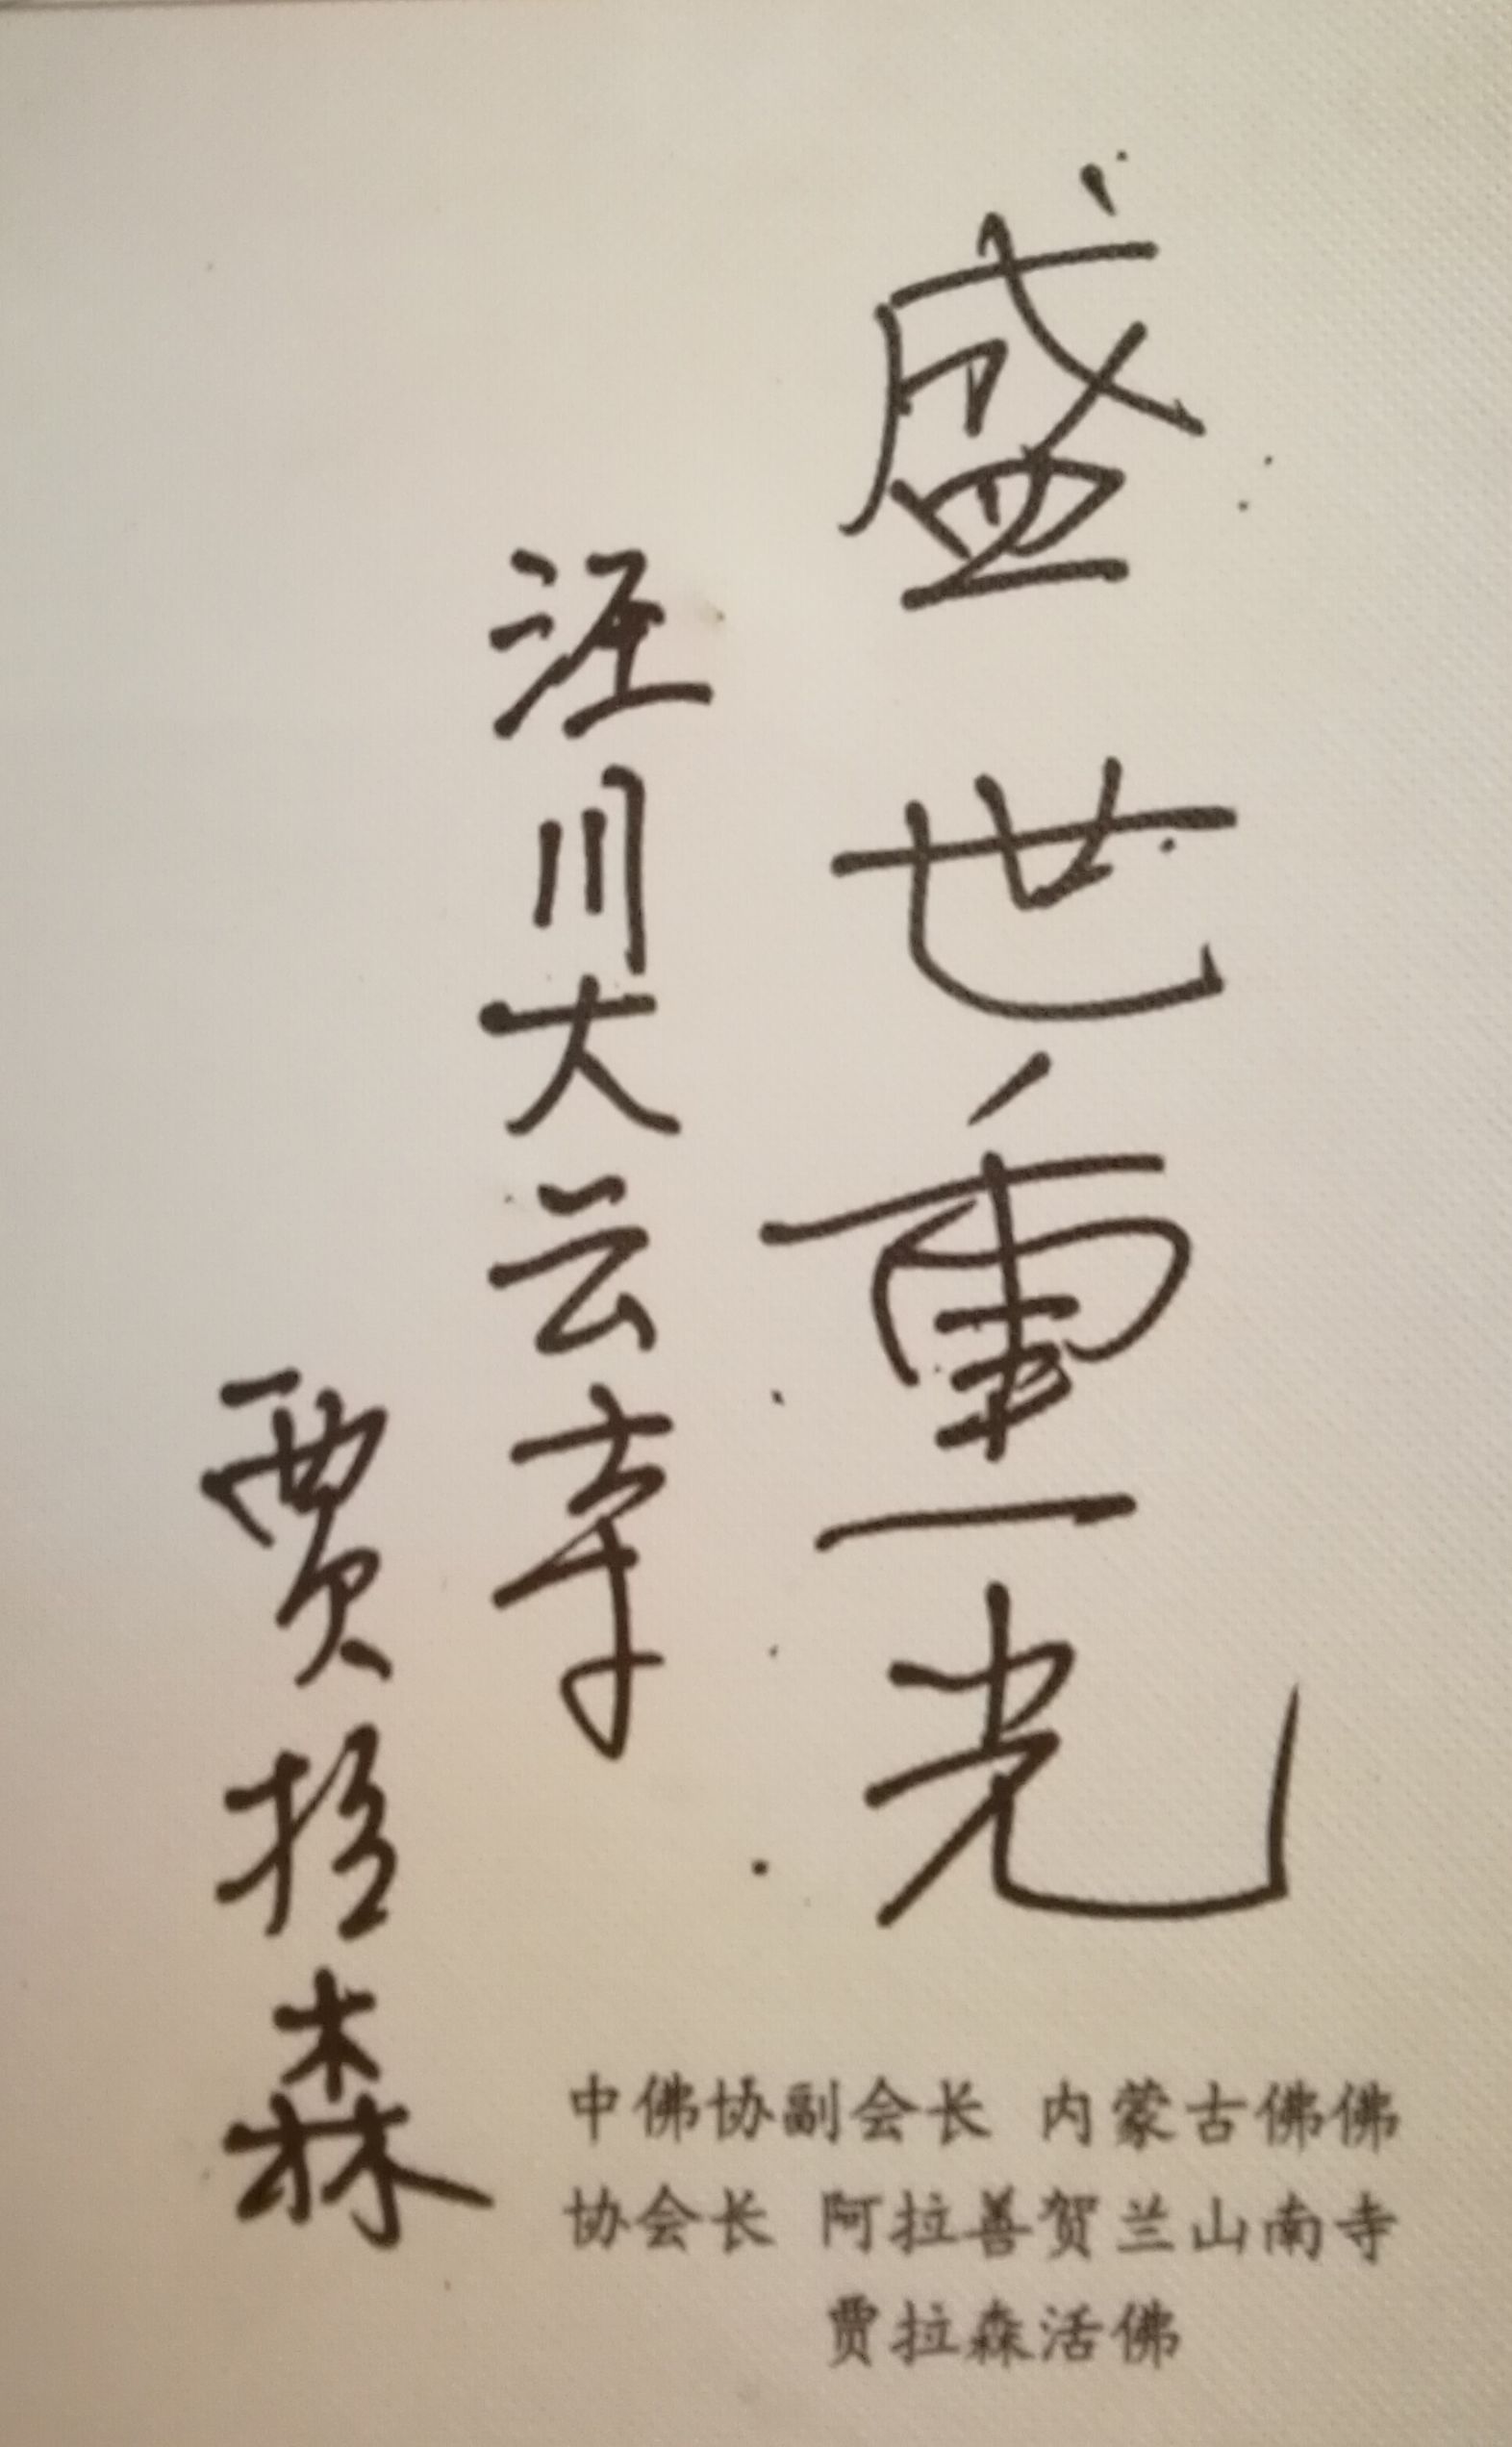 盛世重光
泾川大云寺
贾拉森
中佛协副会长 内蒙古佛佛
协会长 阿拉善贺兰山南寺
贾拉森活佛